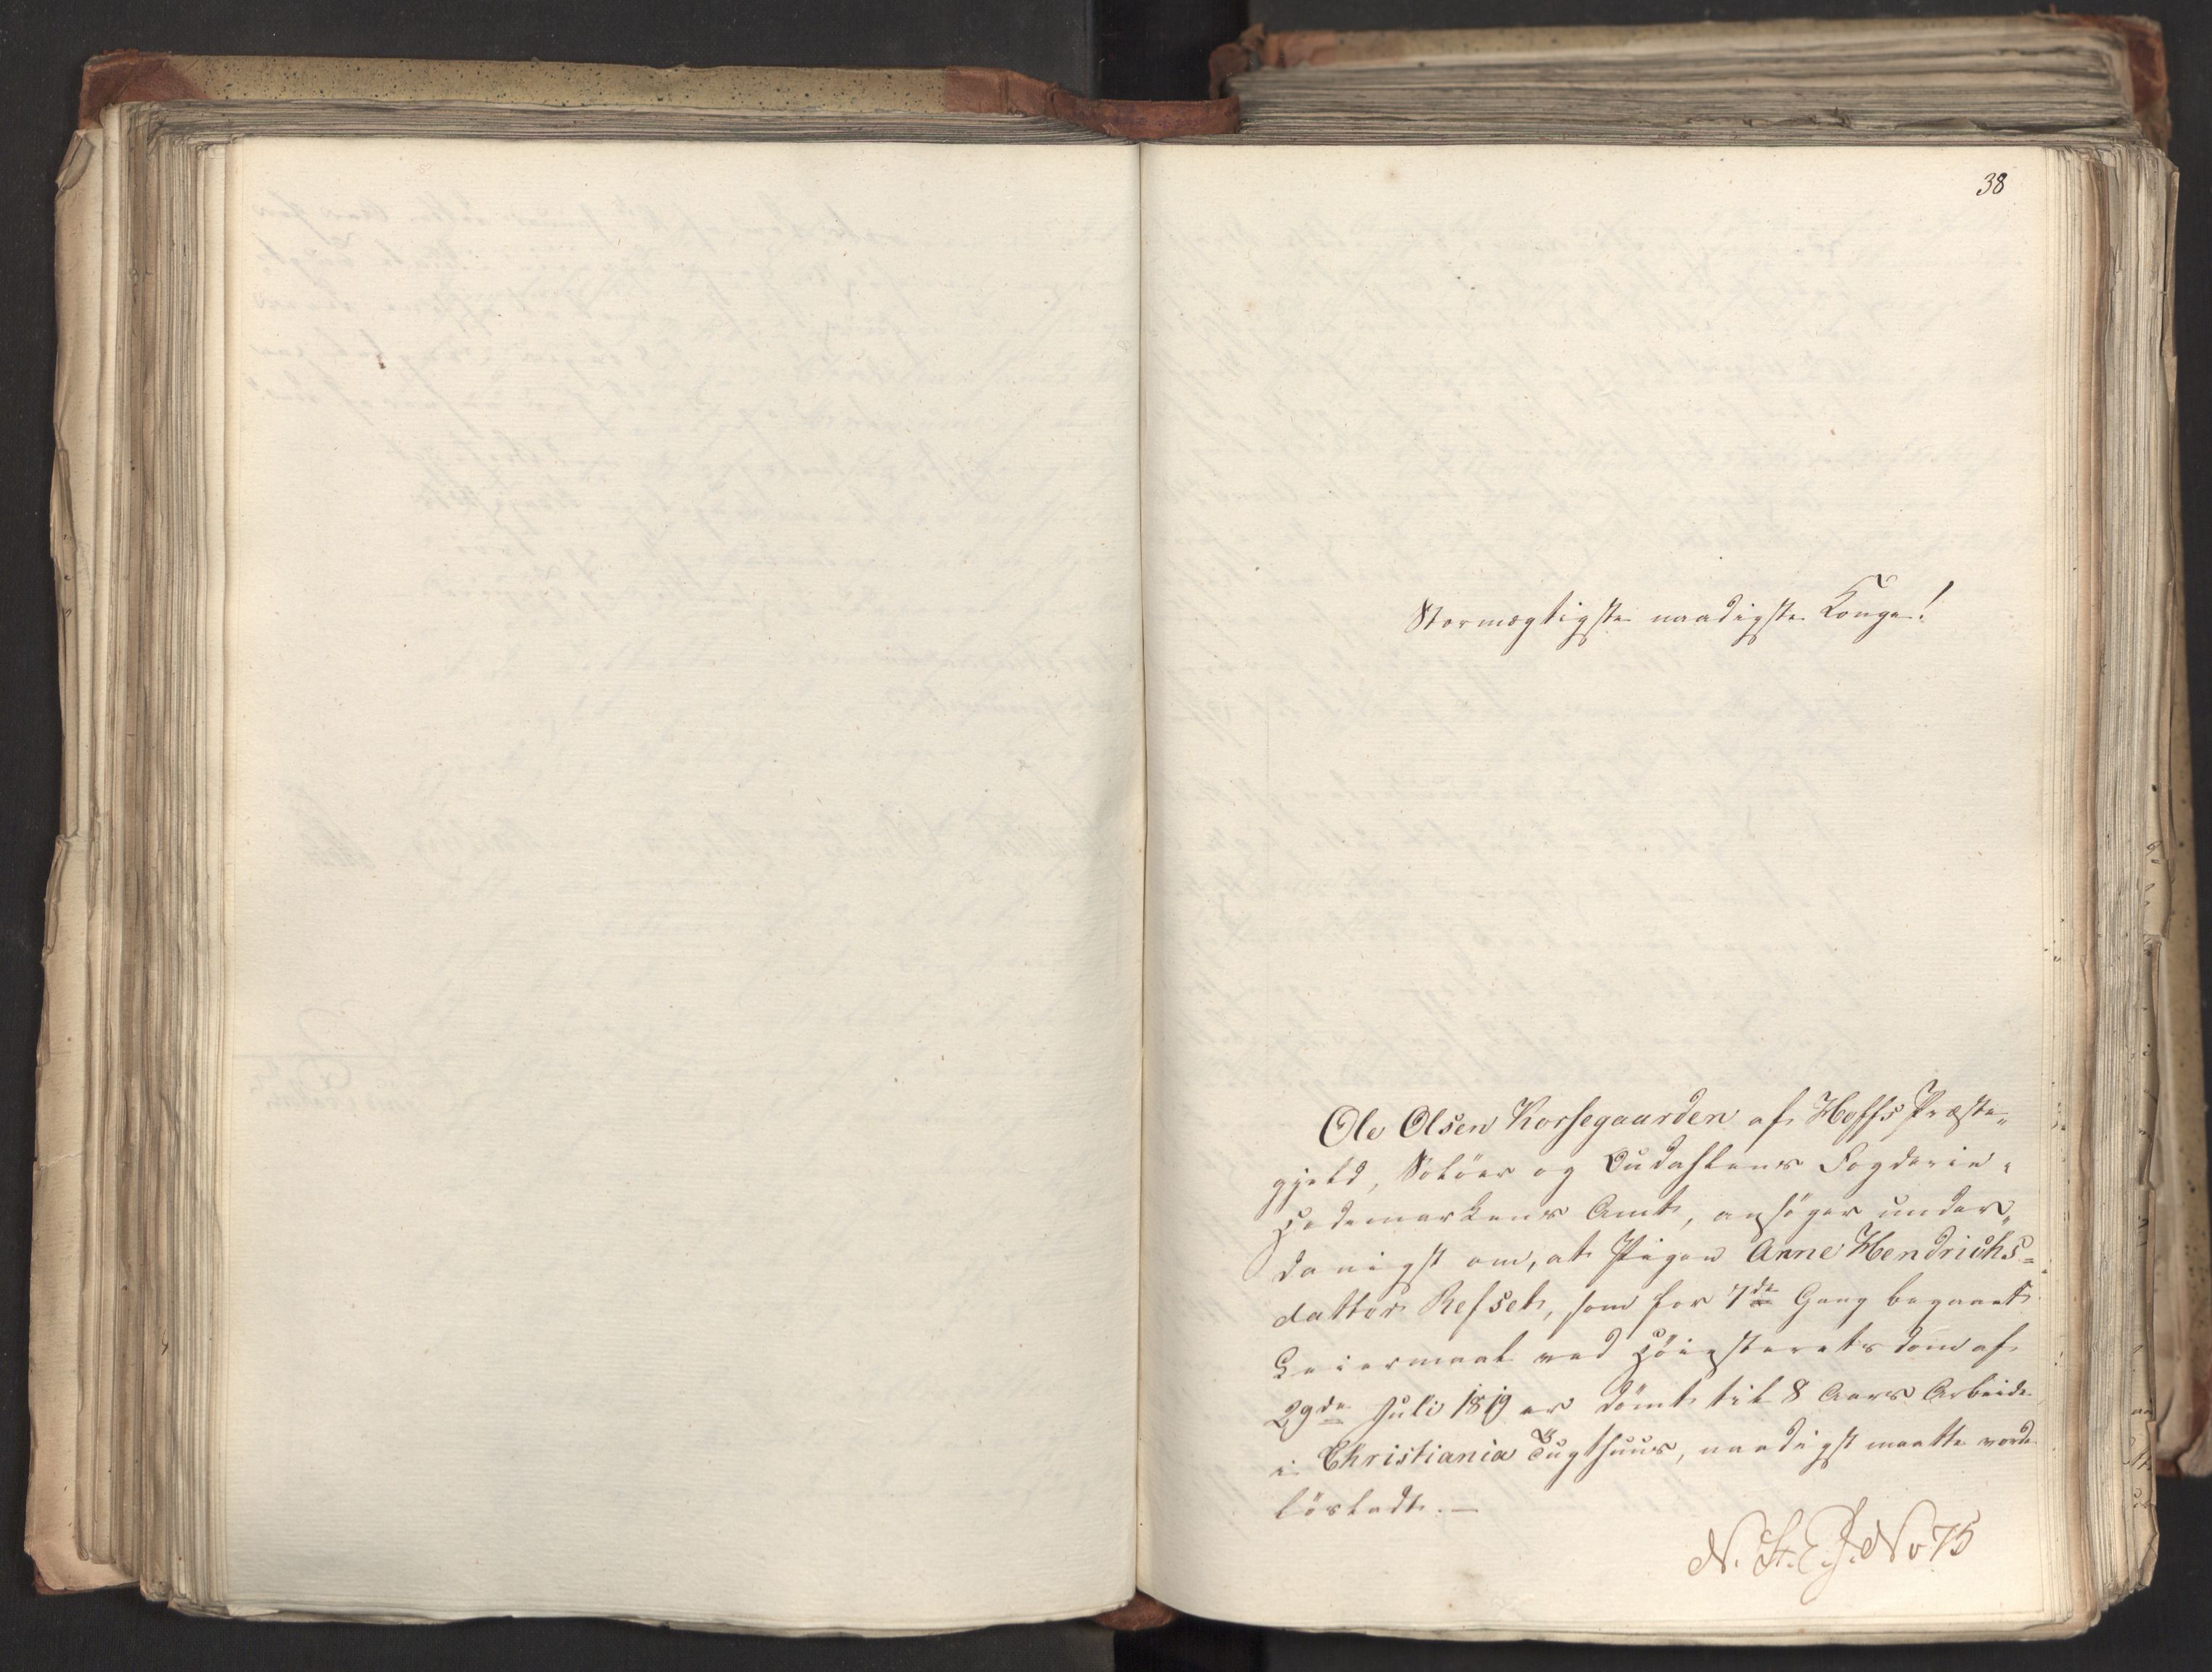 38
Stormægtigste naadigste Konge!
Ole Olsen Korsegaarden af Hoffs Præste„
gjeld, Solöer og Oudahlens Fogderie,
Hedemarkens Amt, ansöger under„
danigst om, at Pigen Anne Hendrichs=
datter Refset, som for 7de Gang begaaet
Leiermaal ved Höiesterets Dom af
29de Juli 1819 er dömt til 8 Aars Arbeide
i Christiania Tugthuus, naadigst maatte vorde
lösladt. —
N. St. E. J. No 75